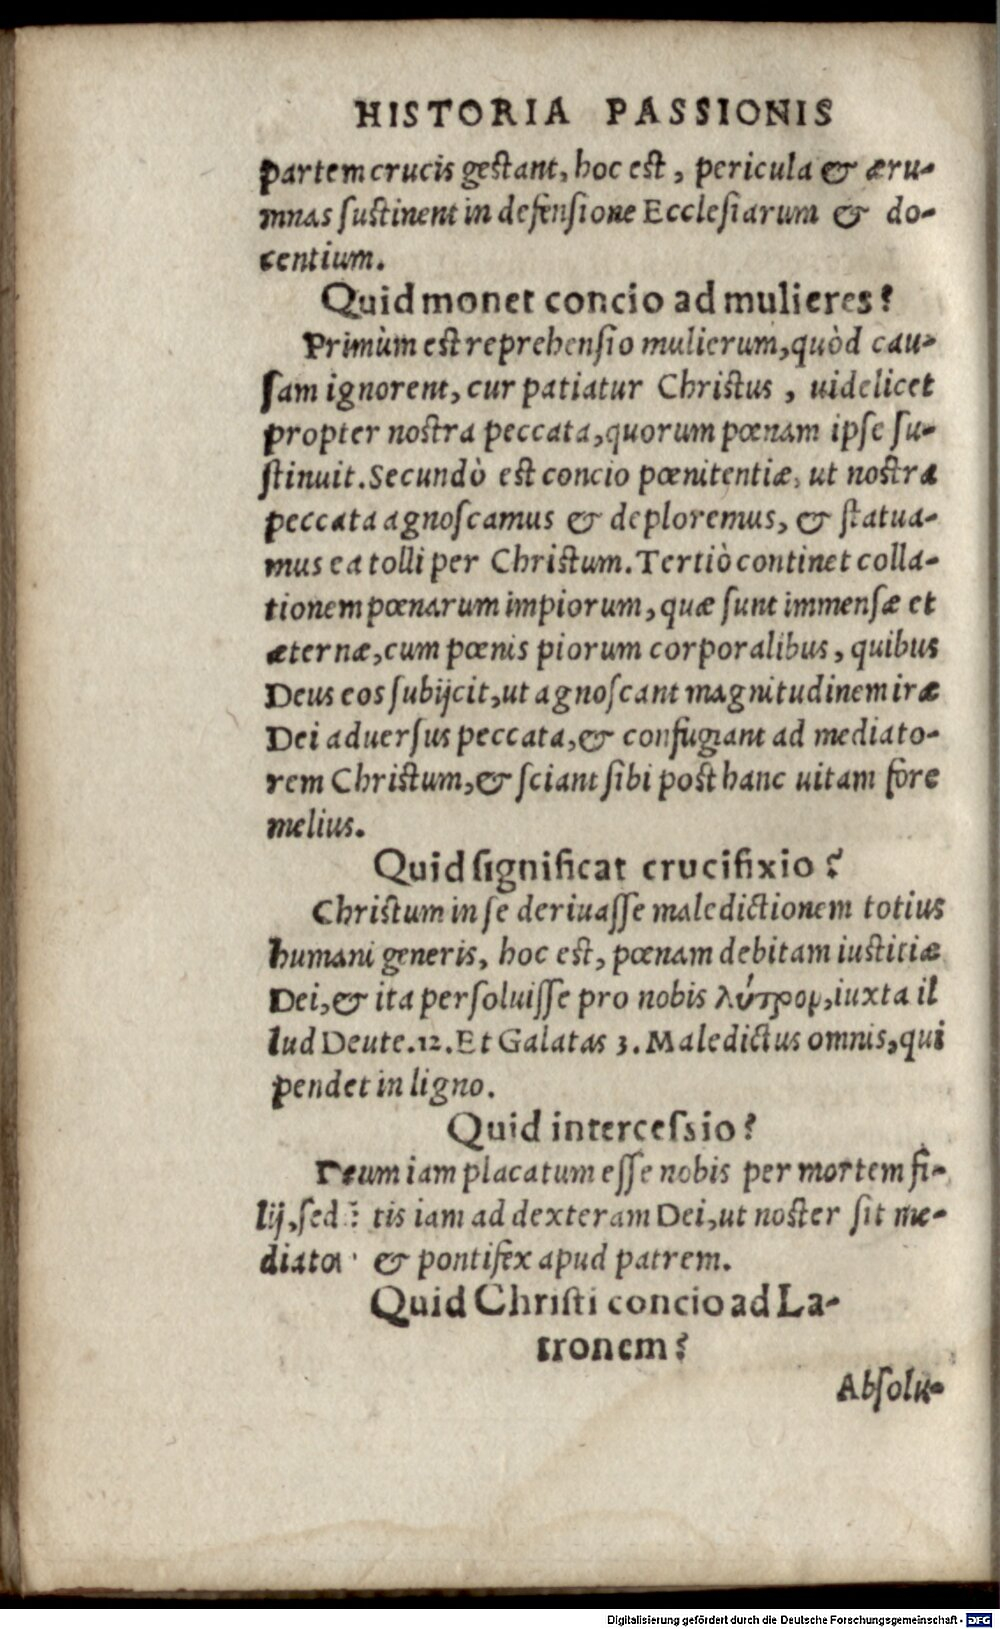 HISTORIA PASSIONIS
partem crucis gestant, hoc est, pericula & æru-
mnas ſustinent in defenſione Eccleſiarum & do-
centium.
Quid monet concio ad mulieres?
Primùm est reprehenſio mulierum, quòd cau-
ſam ignorent, cur patiatur Christus, uidelicet
propter nostra peccata, quorum pœnam ipſe ſu-
ſtinuit. Secundò est concio pœnitentiæ, ut nostra
peccata agnoſcamus & deploremus, & ſtatua-
mus ea tolli per Christum. Tertiò continet colla-
tionem pœnarum impiorum, quæ ſunt immenſæ et
æternæ, cum pœnis piorum corporalibus, quibus
Deus eos ſubijcit, ut agnoſcant magnitudinem iræ
Dei aduerſus peccata, & confugiant ad mediato-
rem Christum, & ſciant ſibi post hanc uitam fore
melius.
Quid ſignificat crucifixio?
Christum in ſe deriuaſſe maledictionem totius
humani generis, hoc est, pœnam debitam iusticiæ
Dei, & ita perſoluiſſe pro nobis λύτρον, iuxta il
lud Deute. 12. Et Galatas 3. Maledictus omnis, qui
pendet in ligno.
Quid interceſsio?
Deum iam placatum eſſe nobis per mortem fi-
lij, ſed tis iam ad dexteram Dei, ut noster ſit me-
diator & pontifex apud patrem.
Quid Chriſti concio ad La-
tronem?
Abſolu-
Digitalisierung gefördert durch die Deutsche Forschungsgemeinschaft - DFG